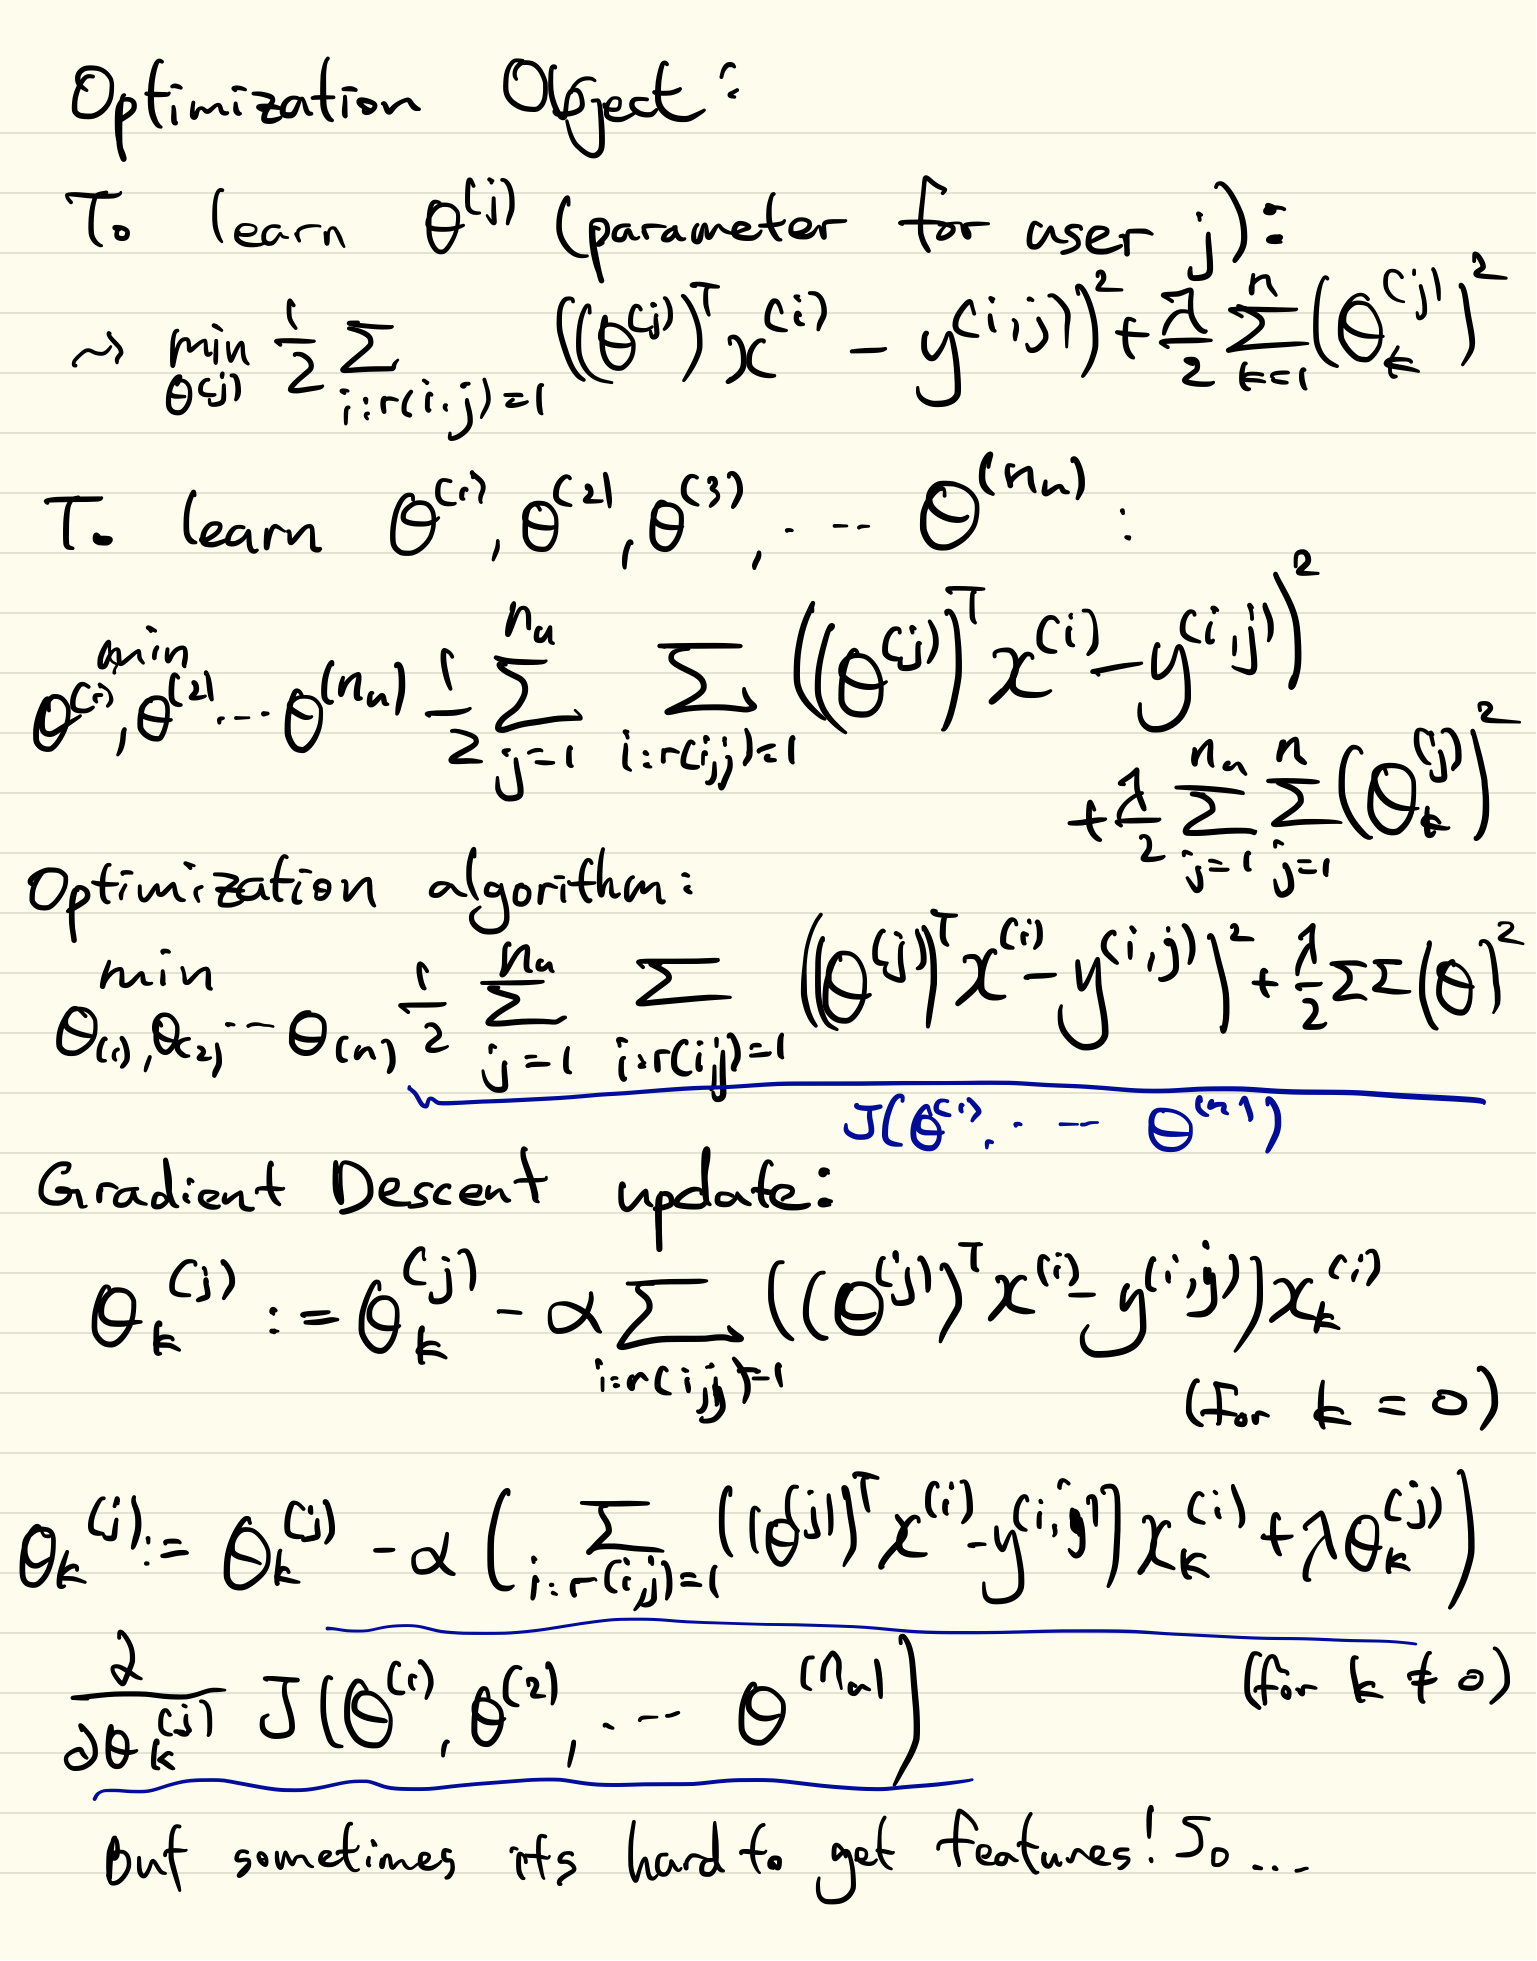 Optimization Object:
To learn θ^(j) (parameter for user j):
~> min_{θ^(j)} 1/2 Σ_{i:r(i,j)=1} ((θ^(j))^T x^(i) − y^(i,j))^2 + λ/2 Σ_{k=1}^{n} (θ_k^(j))^2
To learn θ^(1), θ^(2), θ^(3), ... θ^(n_u):
min_{θ^(1), θ^(2) ... θ^(n_u)} 1/2 Σ_{j=1}^{n_u} Σ_{i:r(i,j)=1} ((θ^(j))^T x^(i) − y^(i,j))^2
+ λ/2 Σ_{j=1}^{n_u} Σ_{j=1}^{n} (θ_k^(j))^2
Optimization algorithm:
min_{θ_(1), θ_(2), ... θ_(n)} 1/2 Σ_{j=1}^{n_u} Σ_{i:r(i,j)=1} ((θ^(j))^T x^(i) − y^(i,j))^2 + λ/2 ΣΣ(θ)^2
J(θ^(1), ... θ^(n))
Gradient Descent update:
θ_k^(j) := θ_k^(j) − α Σ_{i:r(i,j)=1} ((θ^(j))^T x^(i) − y^(i,j)) x_k^(i)
(for k = 0)
θ_k^(j) := θ_k^(j) − α (Σ_{i:r(i,j)=1} ((θ^(j))^T x^(i) − y^(i,j)) x_k^(i) + λθ_k^(j))
(for k ≠ 0)
∂/∂θ_k^(j) J(θ^(1), θ^(2), ... θ^(n_u))
But sometimes its hard to get features! So ...